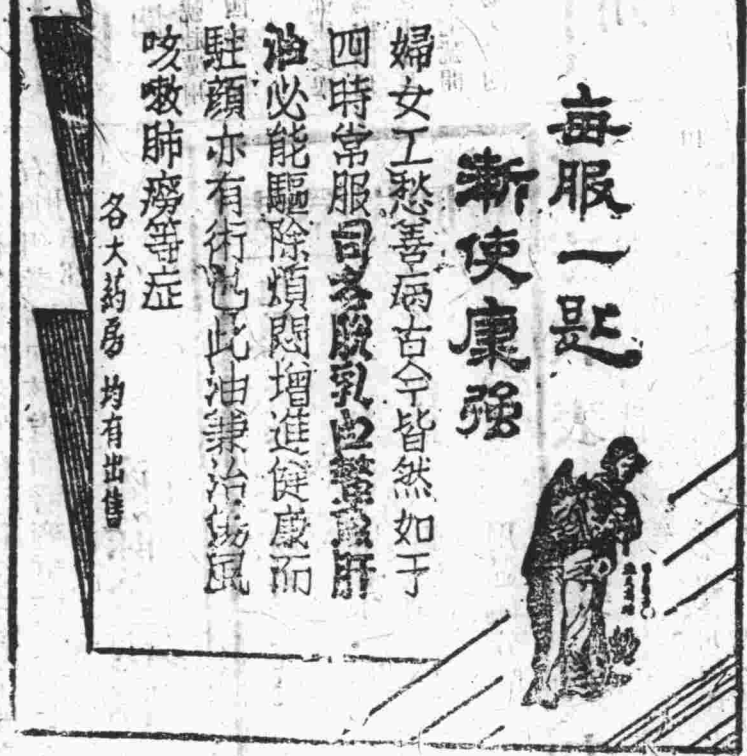 每服一匙
漸使康強
婦女工愁善病古今皆然如于
四時常服司各脫乳白鰵魚肝
油必能驅除煩悶增進健康而
駐顏亦有術也此油兼治傷風
咳嗽肺癆等症
各大葯房均有出售